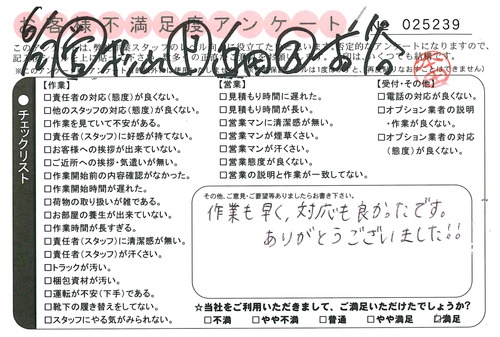 お客様不満足度アンケート
025239
チェックリスト
【作業】
□責任者の対応(態度)が良くない。
□他のスタッフの対応(態度)が良くない。
□作業を見ていて不安がある。
□責任者(スタッフ)に好感が持てない。
□お客様への挨拶が出来ていない。
□ご近所への挨拶・気遣いが無い。
□作業開始前の内容確認がなかった。
□作業開始時間が遅れた。
□荷物の取り扱いが雑である。
□お部屋の養生が出来ていない。
□作業時間が長すぎる。
□責任者(スタッフ)に清潔感が無い。
□責任者(スタッフ)が汗くさい。
□トラックが汚い。
□梱包資材が汚い。
□運転が不安(下手)である。
□靴下の履き替えをしてない。
□スタッフにやる気がみられない。
【営業】
□見積もり時間に遅れた。
□見積もり時間が長い。
□営業マンに清潔感が無い。
□営業マンが煙草くさい。
□営業マンが汗くさい。
□営業態度が良くない。
□営業の説明と作業が一致してない。
【受付・その他】
□電話の対応が良くない。
□オプション業者の説明
・作業が良くない。
□オプション業者の対応
(態度)が良くない。
その他、ご意見・ご要望等ありましたらお書き下さい。
作業も早く、対応も良かったです。
ありがとうございました!!
☆当社をご利用いただきまして、ご満足いただけたでしょうか?
□不満 □やや不満 □普通 □やや満足 ☑満足